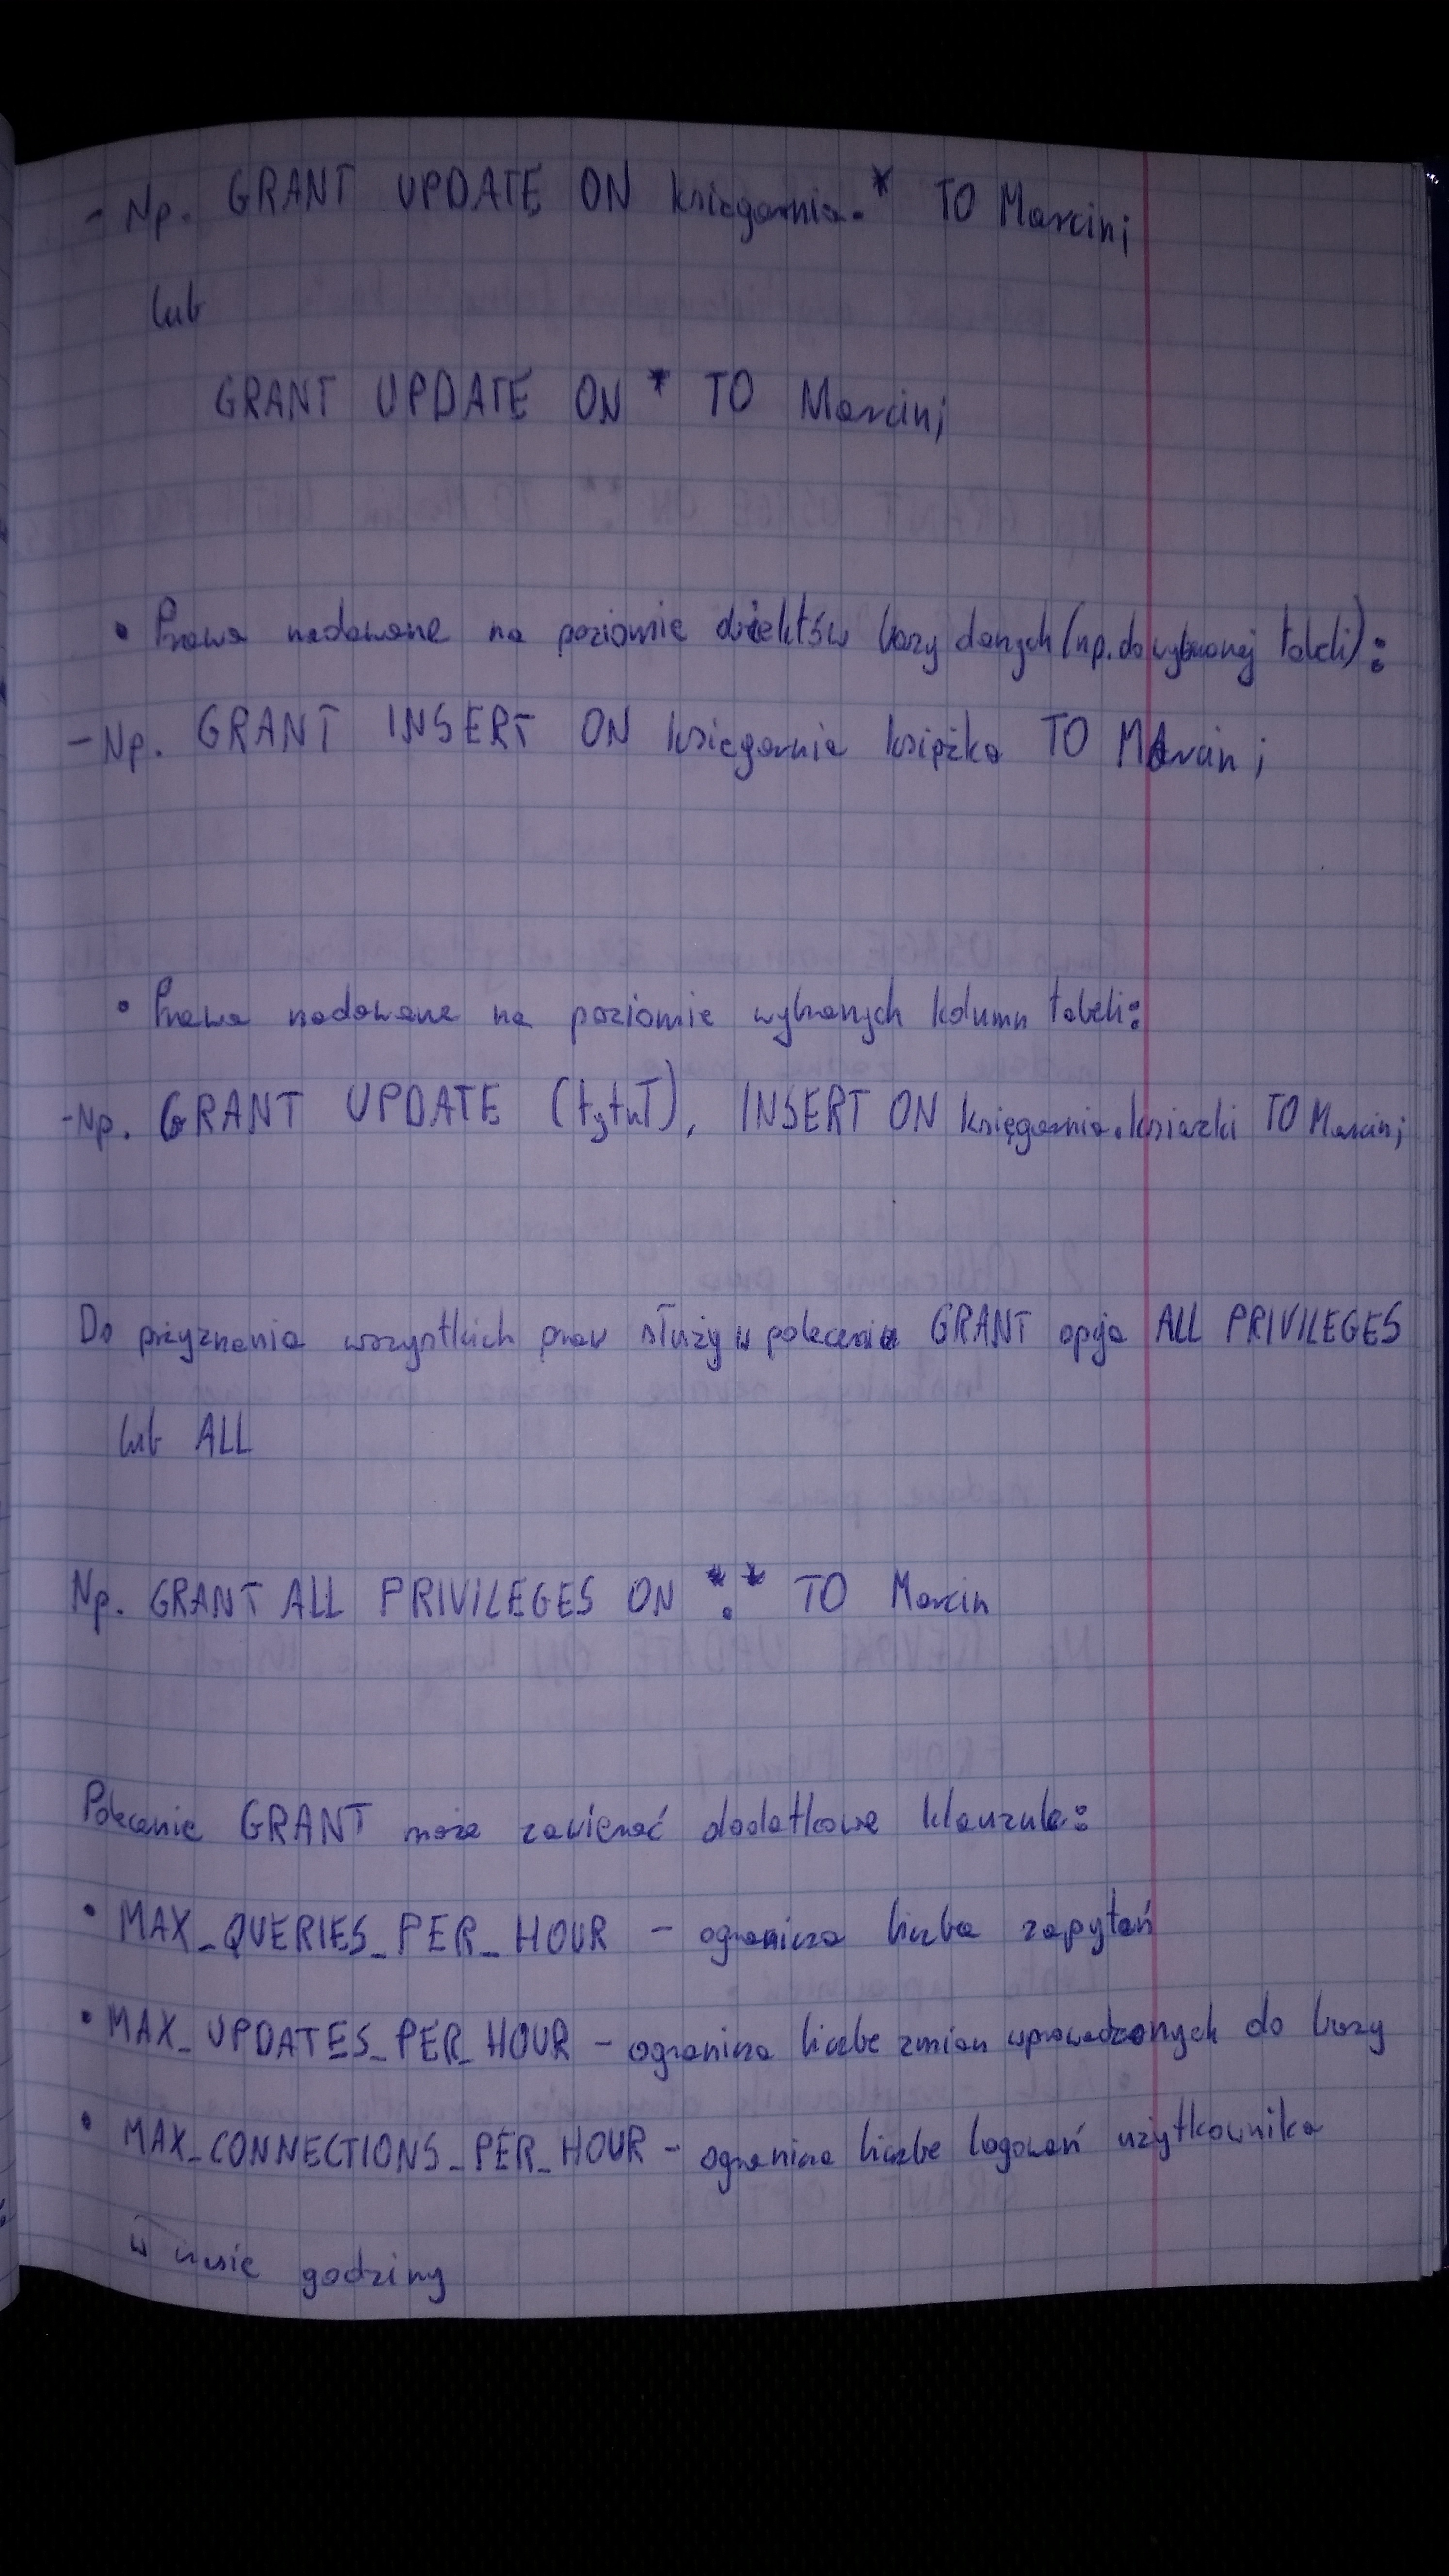 - Np. GRANT UPDATE ON księgarnia.* TO Marcin;
lub
GRANT UPDATE ON * TO Marcin;
• Prawa nadawane na poziomie obiektów bazy danych (np. do wybranej tabeli):
- Np. GRANT INSERT ON księgarnia książka TO Marcin;
• Prawa nadawane na poziomie wybranych kolumn tabeli:
- Np. GRANT UPDATE (tytuł), INSERT ON księgarnia.ksiazki TO Marcin;
Do przyznania wszystkich praw służy w poleceniu GRANT opcja ALL PRIVILEGES
lub ALL
Np. GRANT ALL PRIVILEGES ON *.* TO Marcin
Polecenie GRANT może zawierać dodatkowe klauzule:
• MAX_QUERIES_PER_HOUR - ogranicza liczba zapytań
• MAX_UPDATES_PER_HOUR - ogranicza liczbe zmian wprowadzonych do bazy
• MAX_CONNECTIONS_PER_HOUR - ogranicza liczbe logowań użytkownika
w czasie godziny